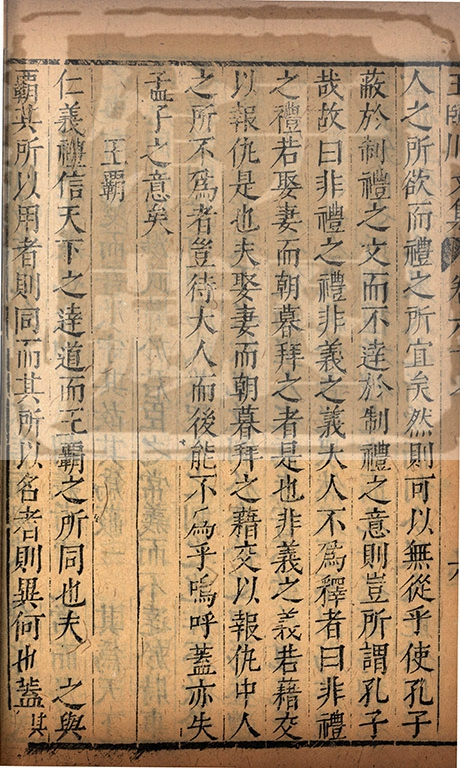 人之所欲而禮之所宜矣然則可以無從乎使孔子
蔽於制禮之文而不達於制禮之意則豈所謂孔子
哉故曰非禮之禮非義之義大人不為釋者曰非禮
之禮若娶妻而朝暮拜之者是也非義之義若藉交
以報仇是也夫娶妻而朝暮拜之藉交以報仇中人
之所不為者豈待大人而後能不為乎嗚呼蓋亦失
孟子之意矣
王霸
仁義禮信天下之達道而王霸之所同也夫 之與
霸其所以用者則同而其所以名者則異何也蓋其